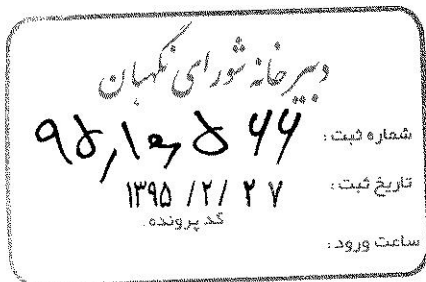 دبیرخانه شورای نگهبان
شماره ثبت : ۹۵/۱۰۲/۵۶۶
تاریخ ثبت : ۱۳۹۵/۲/۲۷
کد پرونده :
ساعت ورود :